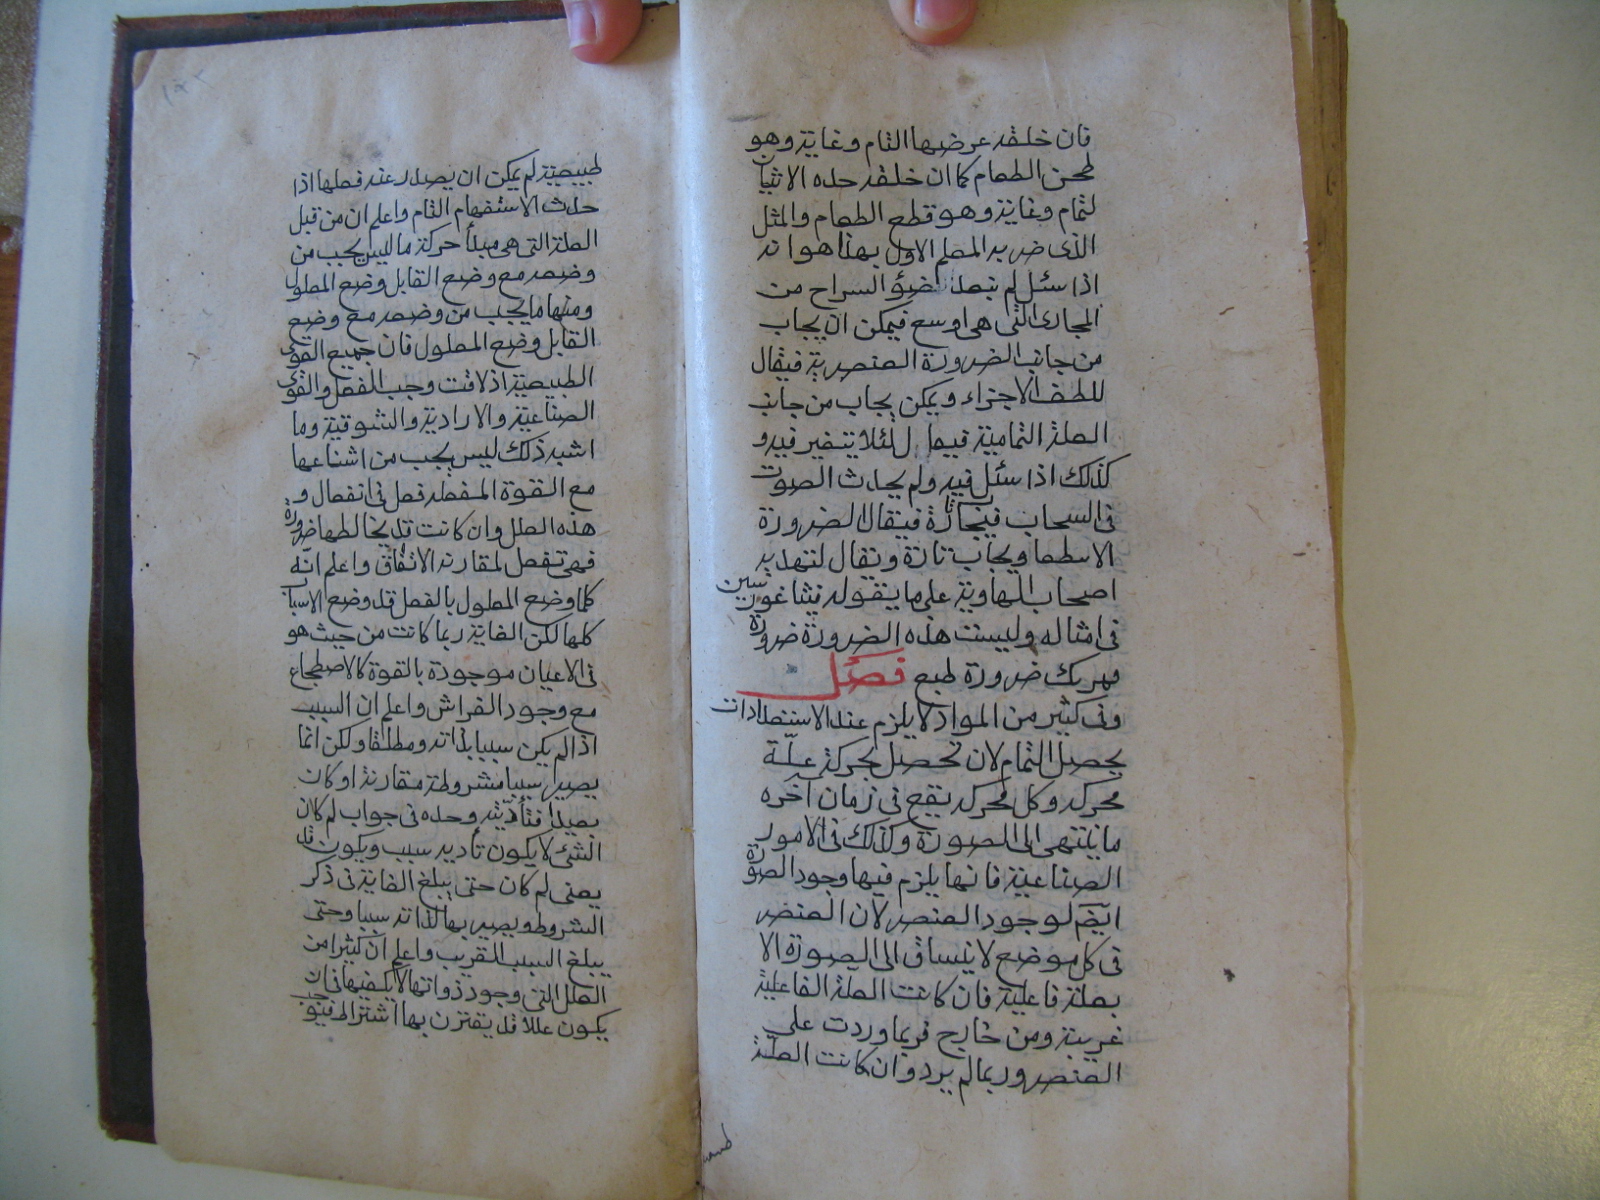 فان خلقه عرضها التام وغاية وهو
طحن الطعام كما ان خلقه حده الاثنيا
لتمام وغاية وهو قطع الطعام والمثل
الذى ضربه المعلم الاول بهذا هو انه
اذا سئل لم ينفذ ضوٴ السراج من
المجارى التى هى اوسع فيمكن ان يجاب
من جانب الضرورة العنصرية فيقال
للطف الاجزاء ويمكن يجاب من جانب
العلة التمامية فيقا لئلا يتغير فيه و
كذلك اذا سئل فيه ولم يحدث الصوت
فى السحاب فيجا تارة فيقال الضرورة
الاسطقا ويجاب تارة ويقال لتهديد
اصحاب الهاوية على ما يقوله فيثاغورسين
فى امثاله وليست هذه الضرورة ضرورة
ضرورة طبع فصل
وفى كثير من المواد لا يلزم عند الاستعدادات
يحصل التمام لان تحصل بحركة علّة
محركه وكل محركه يقع فى زمان آخره
ما ينتهى الى الصورة وكذلك فى الامور
الصناعية فانها يلزم فيها وجود الصورة
ايضا لوجود العنصر لان العنصر
فى كل موضع لا ينساق الى الصورة الا
بعلة فاعلية فان كانت العلة الفاعلية
غريبة ومن خارج فربما وردت على
العنصر وربما لم يرد وان كانت العلة
طبيعية
١٨٢
طبيعية لم يمكن ان يصدر عنه فعلها اذا
حدث الاستفهام التام واعلم ان من قبل
العلة التى هى مبدأ حركة ما ليس يجب من
وضعه مع وضع القابل وضع المعلول
ومنها ما يجب من وضعه مع وضع
القابل وضع المعلول فان جميع القوى
الطبيعية اذ لاقت وجب الفعل والقوى
الصناعية والارادية والشوقية وما
اشبه ذلك ليس يجب من اشناعها
مع القوة المنفعله فعل فى انفعال و
هذه العلل وان كانت قد يخالطها ضرورة
فهى تفعل لمقارنه الاتفاق واعلم انّه
كلما وضع المعلول بالفعل قد وضع الاسباب
كلها لكن الغاية ربما كانت من حيث هو
فى الاعيان موجودة بالقوة كالاضطجاع
مع وجود الفراش واعلم ان السبب
اذا لم يكن سببا بذاته ومطلقا ولكن انما
يصير سببا مشروطة مقارنة او كان
بعيدا فتأديته وحده فى جواب لم كان
الشئ لا يكون تأديه سبب ويكون قد
يعنى لم كان حتى يبلغ الغاية فى ذكر
الشروط ويصير بها لذاته سببا وحتى
يبلغ السبب القريب واعلم ان كثيرا من
العلل التى وجود ذواتها لا يكفيها فى ان
يكون عللا قد يقترن بها اشتراط فيوجب